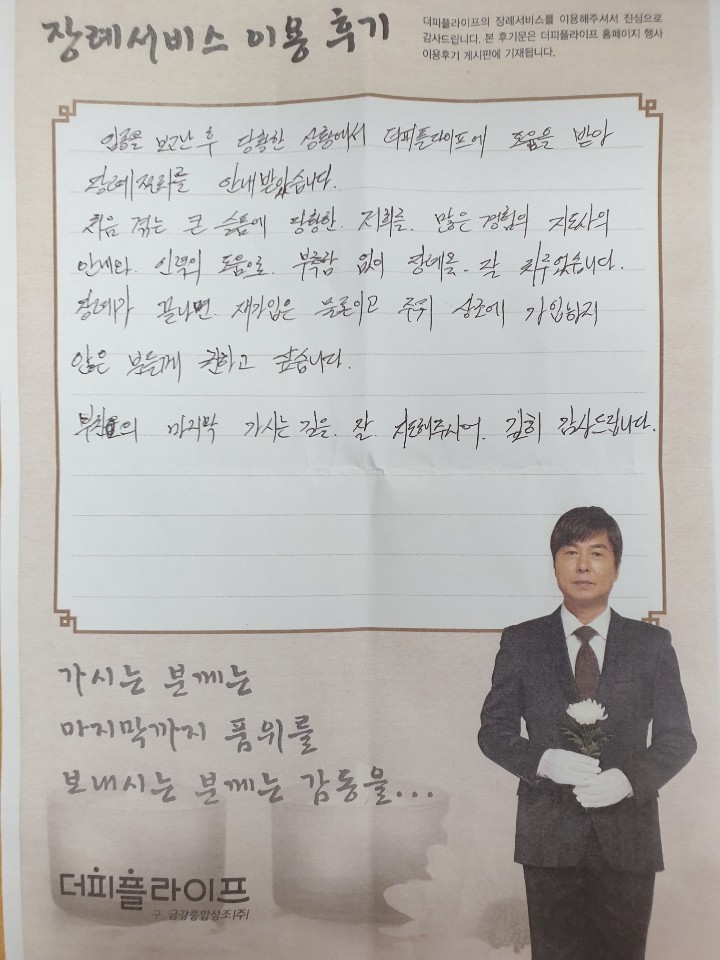 장례서비스 이용 후기
더피플라이프의 장례서비스를 이용해주셔서 진심으로
감사드립니다. 본 후기문은 더피플라이프 홈페이지 행사
이용후기 게시판에 기재됩니다.
임종을 보고난 후 당황한 상황에서 더피플라이프에 도움을 받아
장례절차를 안내받았습니다.
처음 겪는 큰 슬픔에 당황한. 저희를. 많은 경험의 지도사의
안내와. 인력의 도움으로. 부족함 없이 장례를. 잘 치루었습니다.
장례가 끝나면. 재가입은 물론이고 주위 상조에 가입하지
않은 분들께 권하고 싶습니다.
부친의 마지막 가시는 길을. 잘 지도해주시어. 깊히 감사드립니다.
가시는 분께는
마지막까지 품위를
보내시는 분께는 감동을...
더피플라이프
구. 금강종합상조(주)